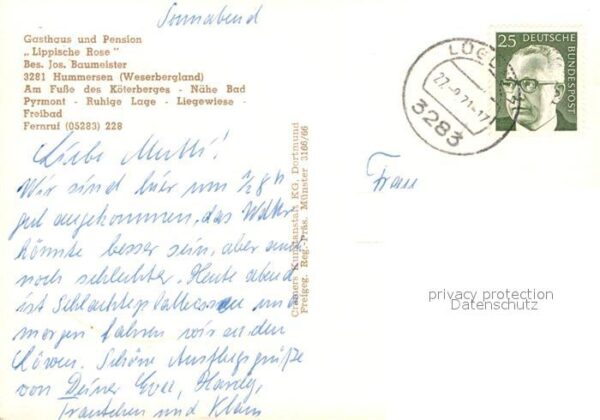 Sonnabend
Gasthaus und Pension
„Lippische Rose"
Bes. Jos. Baumeister
3281 Hummersen (Weserbergland)
Am Fuße des Köterberges - Nähe Bad
Pyrmont - Ruhige Lage - Liegewiese -
Freibad
Fernruf (05283) 228
Liebe Mutti!
Wir sind hier um ½ 8 h
gut angekommen, das Wetter
könnte besser sein, aber auch
noch schlechter. Heute abend
ist Schlachteplattessen und
morgen fahren wir zu den
Löwen. Schöne Ausflugsgrüße
von Deiner
Trautchen und Klaus
Cramers Kunstanstalt KG, Dortmund
Freigeg. Reg.-Präs. Münster 3166/66
25 DEUTSCHE
BUNDESPOST
3283
Frau
privacy protection
Datenschutz